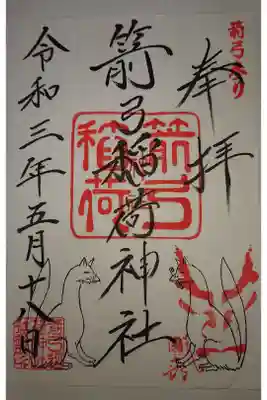 箭弓まいり
奉拝
箭弓稲荷神社
箭弓稲荷
令和三年五月十八日